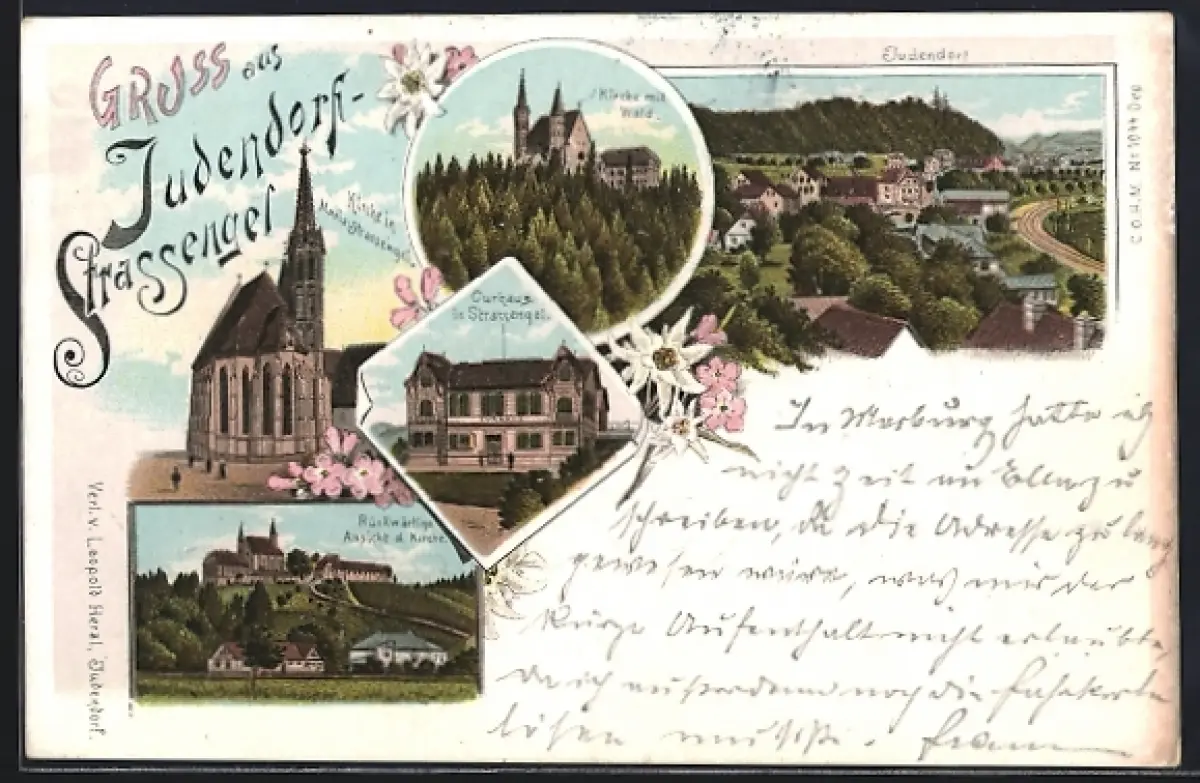 GRUSS aus
Judendorf-
Strassengel
Kirche in
Maria Strassengel.
Kirche mit
Wald.
Judendorf
Curhaus
in Strassengel.
Rückwärtige
Ansicht d. Kirche.
Verl. v. Leopold Heral, Judendorf.
C.O.H.M. No 1044 Dep
In Marburg hatte ich
nicht Zeit an zu
schreiben, da die Adresse zu lang
gewesen wäre, was mir der
kurze Aufenthalt nicht erlaubte,
da ich außerdem noch die Fahrkarte
lösen mußte.